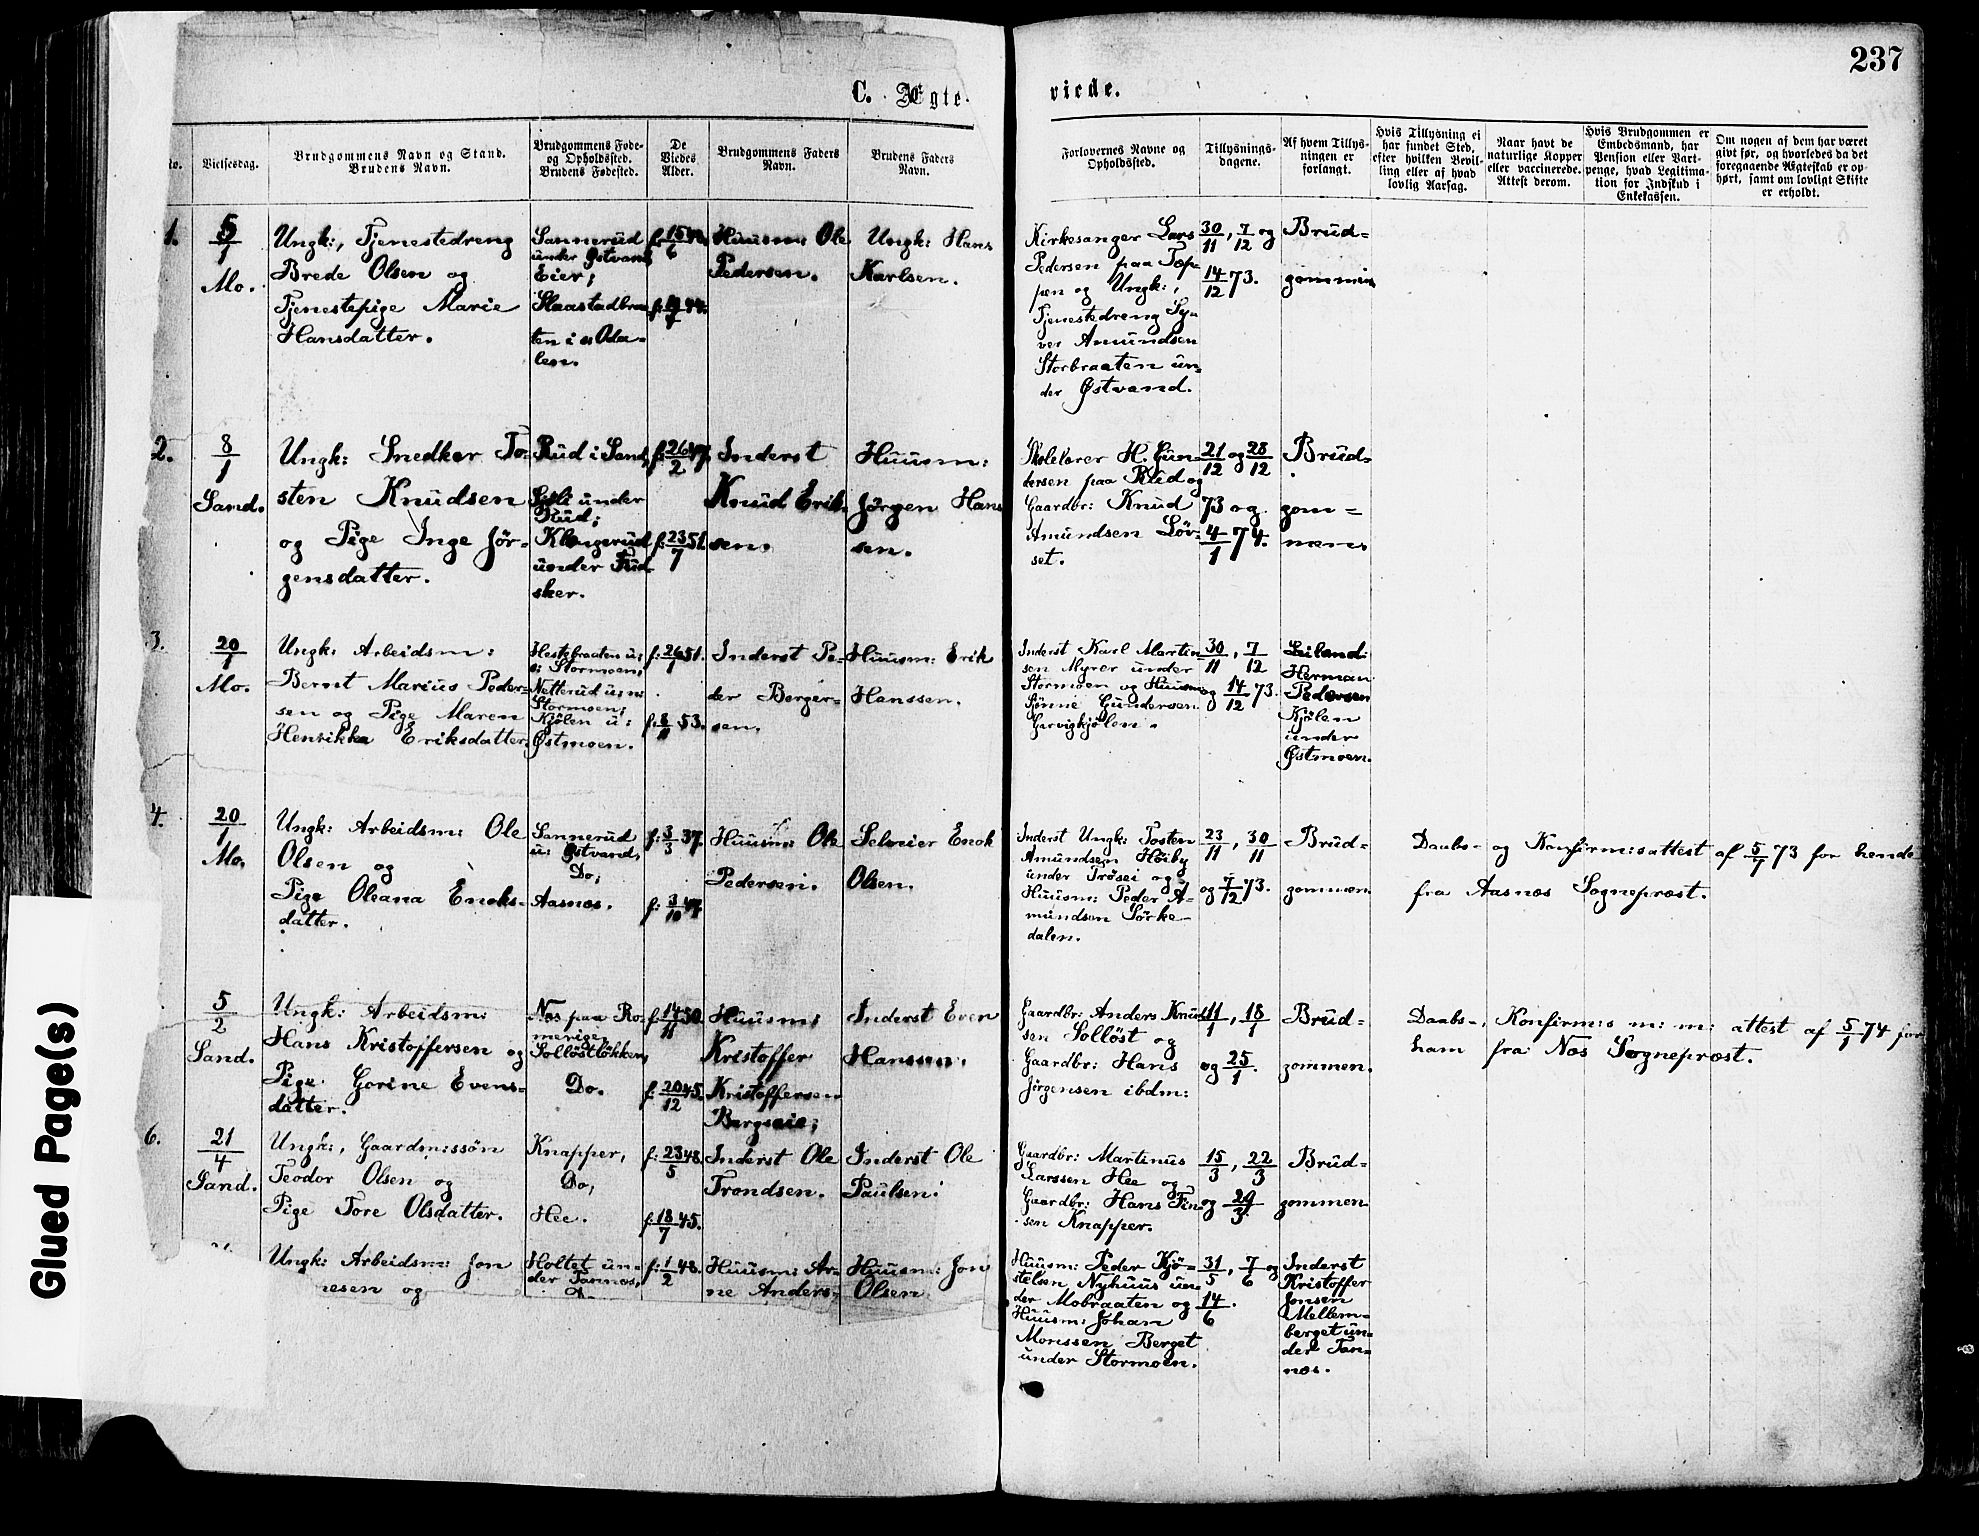 237
C. Ægte-
viede.
No.
Vielsesdag.
Brudgommens Navn og Stand.
Brudens Navn.
Brudgommens Føde-
og Opholdssted.
Brudens Fødested.
De
Viedes
Alder.
Brudgommens Faders
Navn.
Brudens Faders
Navn.
Forlovernes Navne og
Opholdssted.
Tillysnings-
dagene.
Af hvem Tillys-
ningen er
forlangt.
Hvis Tillysning ei
har fundet Sted,
efter hvilken Bevil-
ling eller af hvad
lovlig Aarsag.
Naar havt de
naturlige Kopper
eller vaccinerede.
Attest derom.
Hvis Brudgommen er
Embedsmand, har
Pension eller Vart-
penge, hvad Legitima-
tion for Indskud i
Enkekassen.
Om nogen af dem har været
givt før, og hvorledes da det
foregaaende Ægteskab er op-
hørt, samt om lovligt Skifte
er erholdt.
1.
5/1
Mo.
Ungk:, Tjenestedreng
Brede Olsen og
Tjenestepige Marie
Hansdatter.
Sannerud
under Østvand
Eier;
Slaastadbraa-
ten i s Oda-
len.
Huusm: Ole
Pedersen.
Ungk: Hans
Karlsen.
Kirkesanger Lars
Pedersen paa Tøp-
pen og Ungk:,
Tjenestedreng Sy-
ver Amundsen
Storbraaten un-
der Østvand.
30/11, 7/12 og
14/12 73.
Brud-
gommen
2.
8/1
Sand.
Ungk: Snedker To-
sten Knudsen
og Pige Inge Jør-
gensdatter.
Rud i Sand,
under
Rud;
Klangerud
under Rud
sker.
f: 26/2 47.
f: 23/7 51.
Inderst
Knud Erik-
sen.
Huusm:
Jørgen Hans
sen.
Skolelærer H. Gun-
dersen paa Rud og
Gaardbr: Knud
Amundsen Lør-
set.
21/12 og 28/12
73 og
4/1 74.
Brud-
gom-
men.
3.
20/1
Mo.
Ungk: Arbeidsm:
Bernt Marius Peder-
sen og Pige Maren
Henrikka Eriksdatter.
Hestebraaten u:
s: Stormoen,
Netterud u: n:
Stormoen;
Kjølen u:
Østmoen.
f: 26/1 51.
f: 8/11 53.
Inderst Pe-
der Berger-
sen.
Huusm: Erik
Hanssen.
Inderst Karl Martin
sen Myrer under
Stormoen og Huusm:
Sønne Gundersen
Garvigkjølen.
30/11, 7/12
og 14/12 73.
Leiland:
Herman
Pedersen
Kjølen
under
Østmoen.
4.
20/1
Mo.
Ungk: Arbeidsm: Ole
Olsen og
Pige Oleana Enoks-
datter.
Sannerud
u: Østvand,
Do;
Aasnæs.
f: 3/3 37.
f: 3/10 47.
Huusm: Ole
Pedersen.
Selveier Enok
Olsen.
Inderst Ungk: Tosten
Amundsen Høiby
under Trøsei og
Huusm: Peder A-
mundsen Sørke-
dalen.
23/11, 30/11
og 7/12 73.
Brud-
gommen.
Daabs- og Konfirm:sattest af 5/7 73 for hende
fra Aasnæs Sognepræst.
5/2
Sand.
Ungk: Arbeidsm:
Hans Kristoffersen og
Pige Gorine Evens-
datter.
Næs paa Ro-
merige,
Solløstløkken,
Do.
f: 14/11 50.
f: 20/12 45.
Huusm:
Kristoffer
Kristoffersen
Bergseie;
Inderst Even
Hanssen.
Gaardbr: Anders Knud-
sen Solløst og
Gaardbr: Hans
Jørgensen ibdm:
11/1, 18/1
og 25/1.
Brud-
gommen.
Daabs-, Konfirm:s m: m: attest af 5/1 74 for
ham fra Næs Sognepræst.
6.
21/4
Sand.
Ungk:, Gaardm:ssøn
Teodor Olsen og
Pige Tore Olsdatter.
Knapper,
Do,
Hee.
f: 23/5 48.
f: 18/7 45.
Inderst Ole
Trondsen.
Inderst Ole
Paulsen.
Gaardbr: Martinus
Larssen Hee og
Gaardbr: Hans Fin-
sen Knapper.
15/3, 22/3
og 29/3.
Brud-
gommen
Ungk: Arbeidsm: Jon
nesen og
Holtet un-
der Tannæs,
f: 1/2 48.
Huusm: Ar-
ne Anders-
Huusm: Jon
Olsen
Huusm: Peder Kjø-
stelsen Nyhuus un-
der Mobraaten og
Huusm: Johan
Monssen Berget
under Stormoen.
31/5, 7/6 og
14/6.
Inderst
Kristoffer
Jonsen
Mellem-
berget un-
der Tan-
næs.
Glued Page(s)